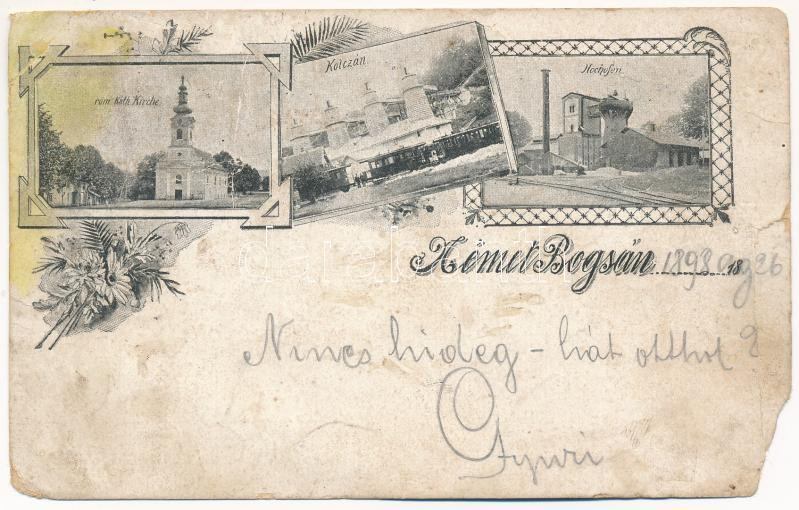 röm. Kath. Kirche
Kolczán
Hochofen
Német Bogsán 1898 aug 26 18
Nincs hideg – hát otthol?
Gyuri